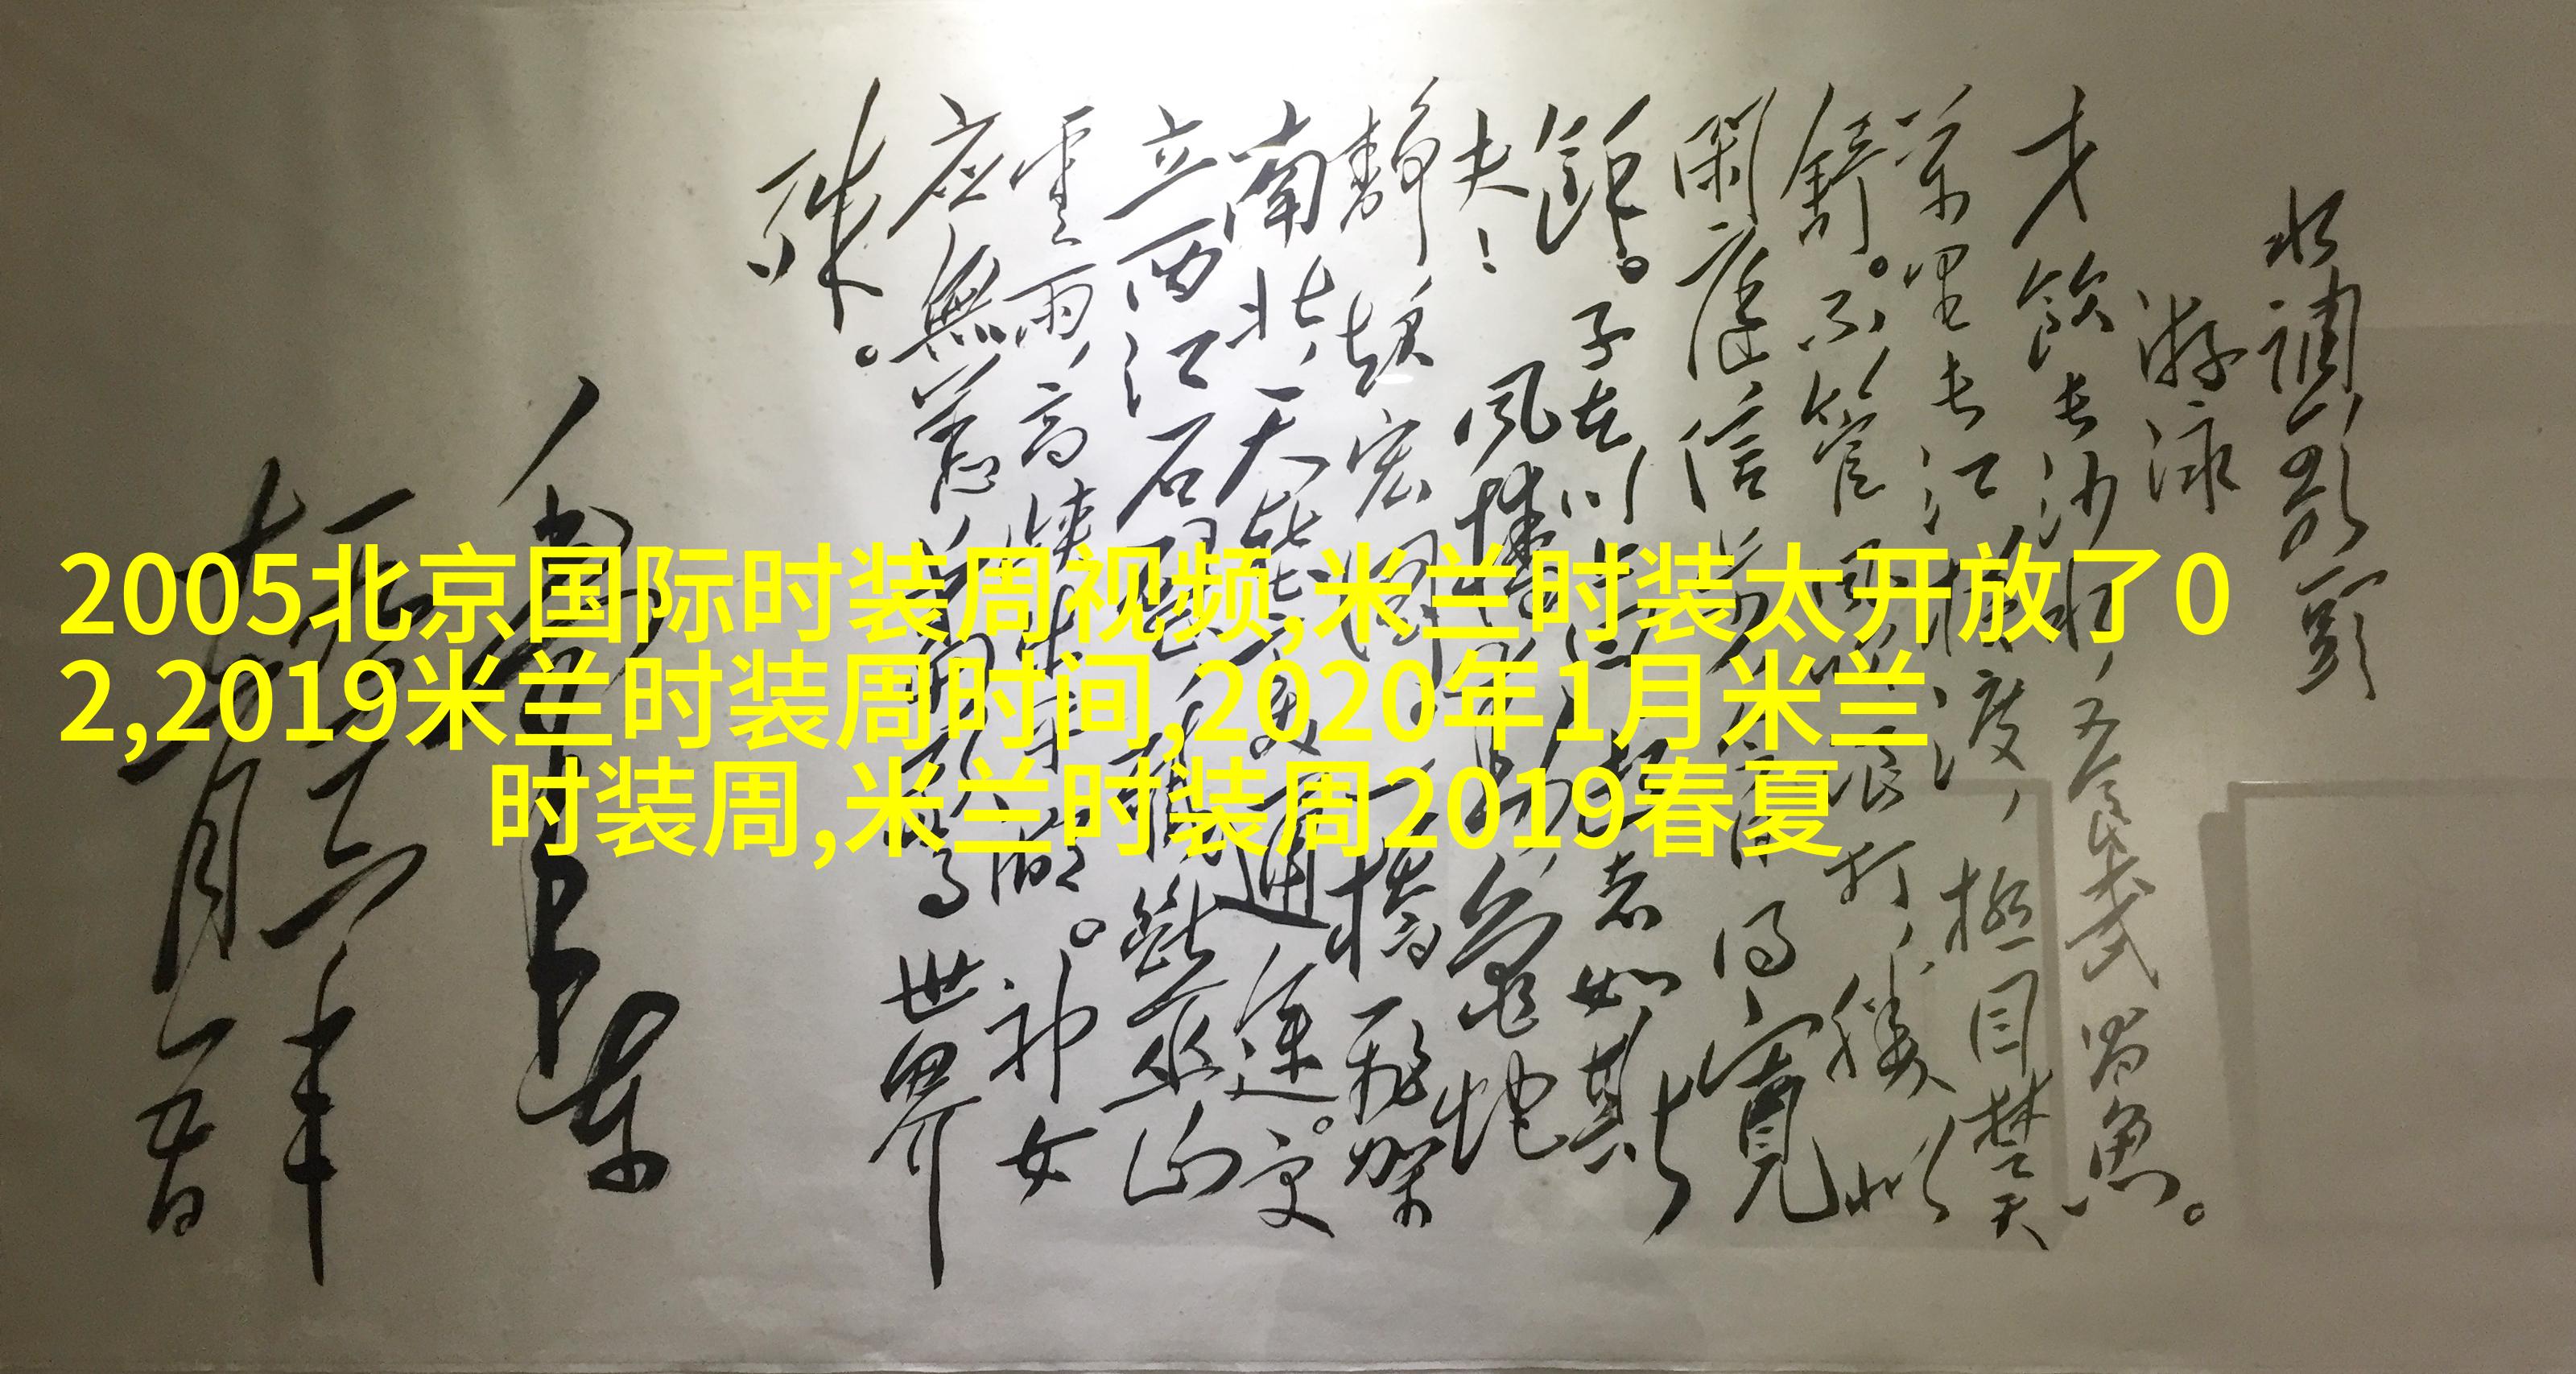 水調歌頭
游泳
才飲长沙水,又食武昌魚。
萬里长江横渡,極目楚天
舒。不管風吹浪打,勝似
閑庭信步,今日得寬
餘。子在川上曰:逝者如斯
夫! 風樯動,龜蛇
静,起宏圖。一橋飛架
南北,天堑變通途。更
立西江石壁,截斷巫山
雲雨,高峡出平湖。神女
应無恙,當驚世界
殊。
2005北京国际时装周视频,米兰时装太开放了0
2,2019米兰时装周时间,2020年1月米兰
时装周,米兰时装周2019春夏